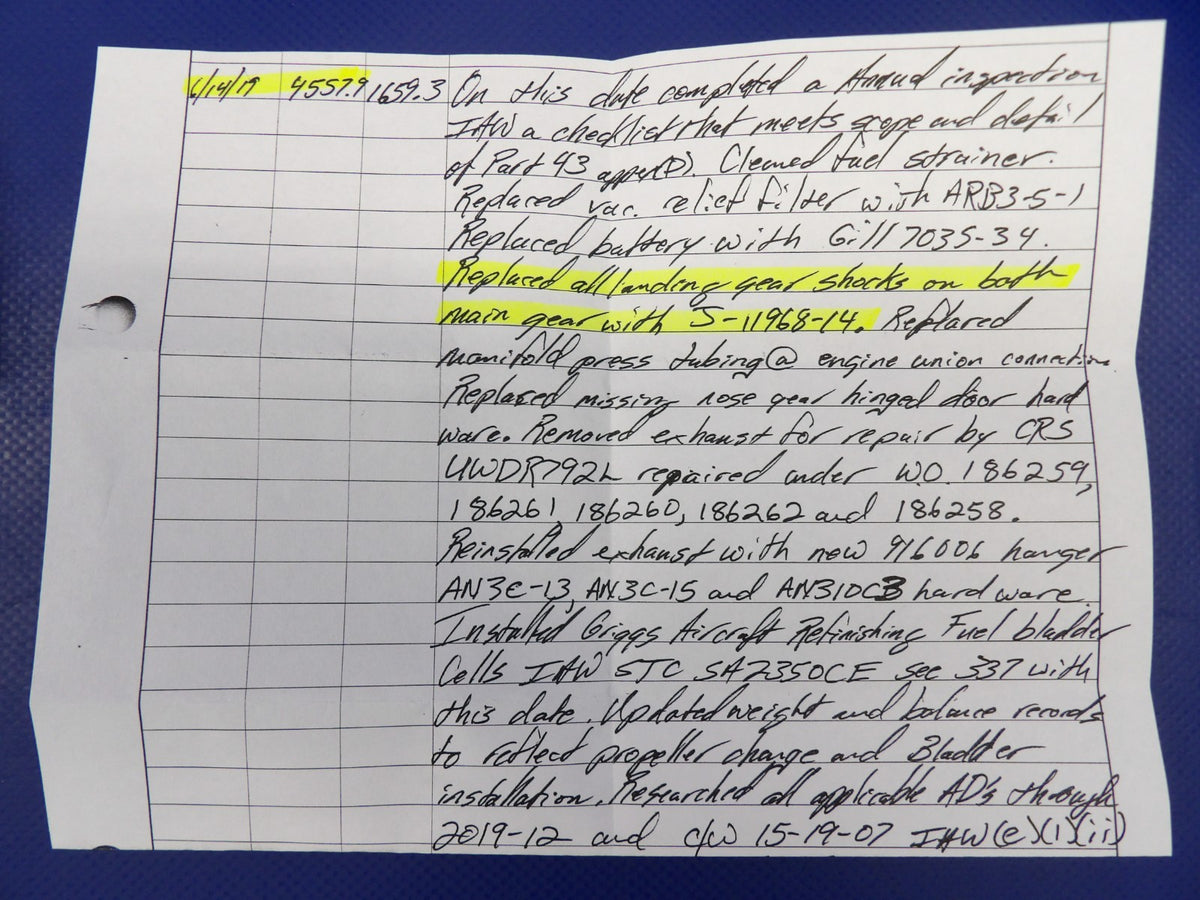 6/14/19 4557.9 1659.3 On this date completed a Annual inspection
IAW a checklist that meets scope and detail
of Part 43 appen(D). Cleaned fuel strainer.
Replaced vac. relief filter with ARB3-5-1
Replaced battery with Gill 7035-34.
Replaced all landing gear shocks on both
main gear with J-11968-14. Replaced
manifold press tubing @ engine union connection
Replaced missing nose gear hinged door hard
ware. Removed exhaust for repair by CRS
UWDR792L repaired under W.O. 186259,
186261, 186260, 186262 and 186258.
Reinstalled exhaust with new 916006 hanger
AN3C-13, AN3C-15 and AN310C3 hardware.
Installed Griggs Aircraft Refinishing Fuel bladder
Cells IAW STC SA2350CE see 337 with
this date. Updated weight and balance records
to reflect propeller change and Bladder
installation. Researched all applicable AD's through
2019-12 and c/w 15-19-07 IAW (e)(1)(ii)